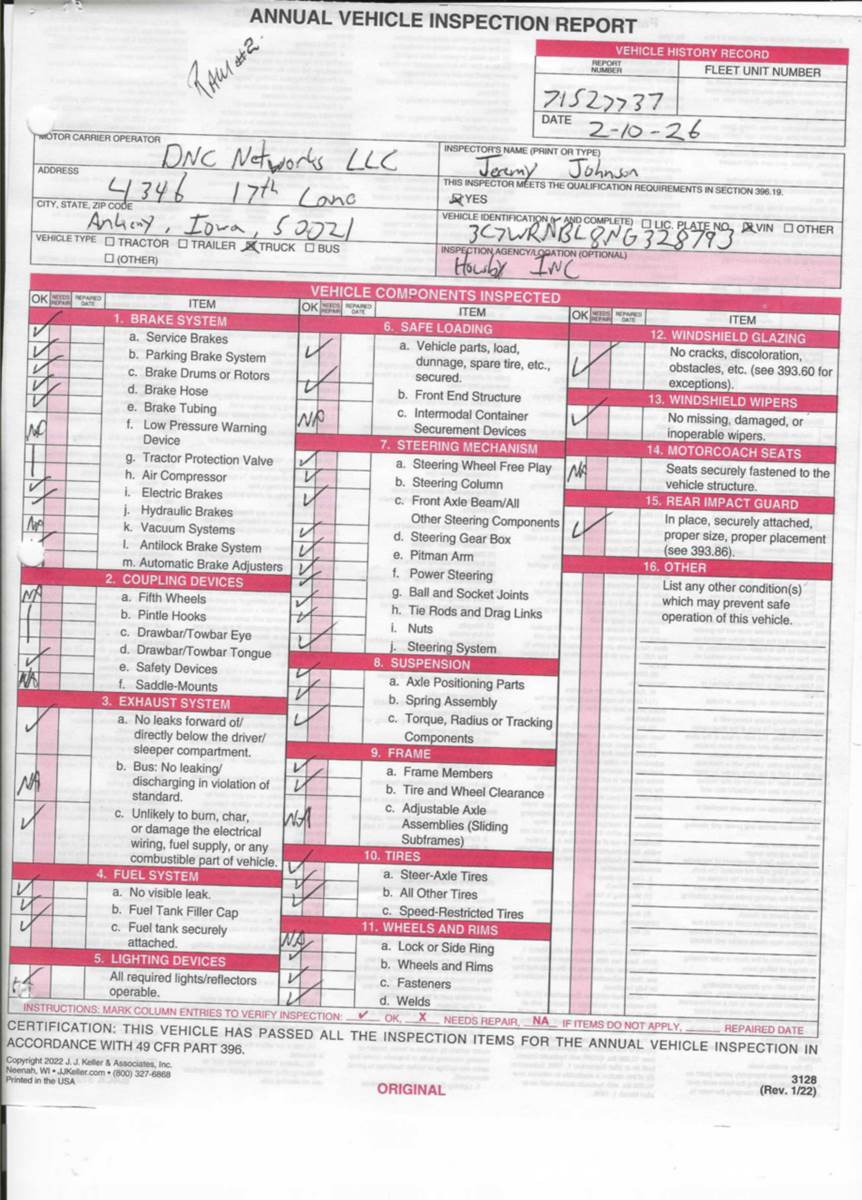 ANNUAL VEHICLE INSPECTION REPORT
RAM #2
VEHICLE HISTORY RECORD
REPORT NUMBER
FLEET UNIT NUMBER
71527737
DATE
2-10-26
MOTOR CARRIER OPERATOR
DNC Networks LLC
ADDRESS
4346 17th Lane
CITY, STATE, ZIP CODE
Ankeny, Iowa, 50021
VEHICLE TYPE ☐ TRACTOR ☐ TRAILER ☒ TRUCK ☐ BUS
☐ (OTHER)
INSPECTOR'S NAME (PRINT OR TYPE)
Jeremy Johnson
THIS INSPECTOR MEETS THE QUALIFICATION REQUIREMENTS IN SECTION 396.19.
☒ YES
VEHICLE IDENTIFICATION (✓ AND COMPLETE) ☐ LIC. PLATE NO. ☒ VIN ☐ OTHER
3C7WRNBL8NG328793
INSPECTION AGENCY/LOCATION (OPTIONAL)
Housby INC
VEHICLE COMPONENTS INSPECTED
OK NEEDS REPAIR REPAIRED DATE ITEM
1. BRAKE SYSTEM
✓ a. Service Brakes
✓ b. Parking Brake System
✓ c. Brake Drums or Rotors
✓ d. Brake Hose
✓ e. Brake Tubing
f. Low Pressure Warning
Device
g. Tractor Protection Valve
h. Air Compressor
i. Electric Brakes
j. Hydraulic Brakes
k. Vacuum Systems
l. Antilock Brake System
m. Automatic Brake Adjusters
2. COUPLING DEVICES
NA a. Fifth Wheels
b. Pintle Hooks
c. Drawbar/Towbar Eye
d. Drawbar/Towbar Tongue
✓ e. Safety Devices
NA f. Saddle-Mounts
3. EXHAUST SYSTEM
✓ a. No leaks forward of/
directly below the driver/
sleeper compartment.
NA b. Bus: No leaking/
discharging in violation of
standard.
✓ c. Unlikely to burn, char,
or damage the electrical
wiring, fuel supply, or any
combustible part of vehicle.
4. FUEL SYSTEM
✓ a. No visible leak.
✓ b. Fuel Tank Filler Cap
✓ c. Fuel tank securely
attached.
5. LIGHTING DEVICES
✓ All required lights/reflectors
operable.
OK NEEDS REPAIR REPAIRED DATE ITEM
6. SAFE LOADING
✓ a. Vehicle parts, load,
dunnage, spare tire, etc.,
secured.
✓ b. Front End Structure
NA c. Intermodal Container
Securement Devices
7. STEERING MECHANISM
✓ a. Steering Wheel Free Play
✓ b. Steering Column
✓ c. Front Axle Beam/All
Other Steering Components
✓ d. Steering Gear Box
✓ e. Pitman Arm
✓ f. Power Steering
✓ g. Ball and Socket Joints
✓ h. Tie Rods and Drag Links
✓ i. Nuts
✓ j. Steering System
8. SUSPENSION
✓ a. Axle Positioning Parts
✓ b. Spring Assembly
✓ c. Torque, Radius or Tracking
Components
9. FRAME
✓ a. Frame Members
✓ b. Tire and Wheel Clearance
NA c. Adjustable Axle
Assemblies (Sliding
Subframes)
10. TIRES
✓ a. Steer-Axle Tires
✓ b. All Other Tires
✓ c. Speed-Restricted Tires
11. WHEELS AND RIMS
NA a. Lock or Side Ring
✓ b. Wheels and Rims
✓ c. Fasteners
✓ d. Welds
OK NEEDS REPAIR REPAIRED DATE ITEM
12. WINDSHIELD GLAZING
✓ No cracks, discoloration,
obstacles, etc. (see 393.60 for
exceptions).
13. WINDSHIELD WIPERS
✓ No missing, damaged, or
inoperable wipers.
14. MOTORCOACH SEATS
NA Seats securely fastened to the
vehicle structure.
15. REAR IMPACT GUARD
✓ In place, securely attached,
proper size, proper placement
(see 393.86).
16. OTHER
List any other condition(s)
which may prevent safe
operation of this vehicle.
INSTRUCTIONS: MARK COLUMN ENTRIES TO VERIFY INSPECTION: ✓ OK, X NEEDS REPAIR, NA IF ITEMS DO NOT APPLY, ____ REPAIRED DATE
CERTIFICATION: THIS VEHICLE HAS PASSED ALL THE INSPECTION ITEMS FOR THE ANNUAL VEHICLE INSPECTION IN
ACCORDANCE WITH 49 CFR PART 396.
Copyright 2022 J. J. Keller & Associates, Inc.
Neenah, WI • JJKeller.com • (800) 327-6868
Printed in the USA
ORIGINAL
3128
(Rev. 1/22)